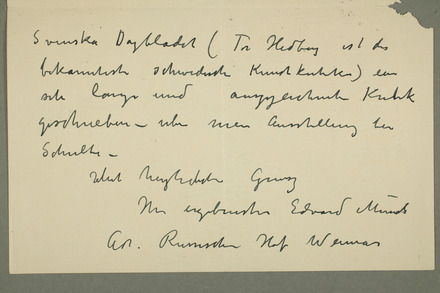 Svenska Dagbladet (Tor Hedberg ist der
bekannteste schwedische Kunstkritiker) eine
sehr lange und ausgezeichnete Kritik
geschrieben – über meine Ausstellung bei
Schulte –
Mit herzlichstem Gruss
Ihr ergebenster Edvard Munch
Adr. Russischer Hof Weimar